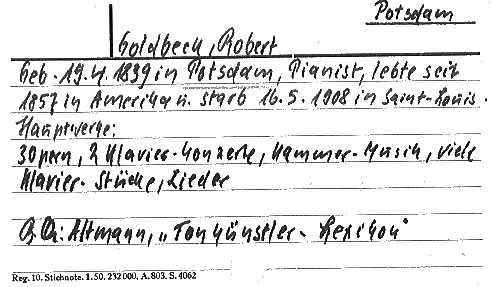 Potsdam
Goldbeck, Robert
Geb. 19.4.1839 in Potsdam, Pianist, lebte seit
1857 in Amerika u. starb 16.5.1908 in Saint-Louis.
Hauptwerke:
3 Opern, 2 Klavier-Konzerte, Kammer-Musik, viele
Klavier-Stücke, Lieder
Altmann, „Tonkünstler-Lexikon"
Reg. 10. Stichnote. 1. 50. 232 000. A. 803. S. 4062